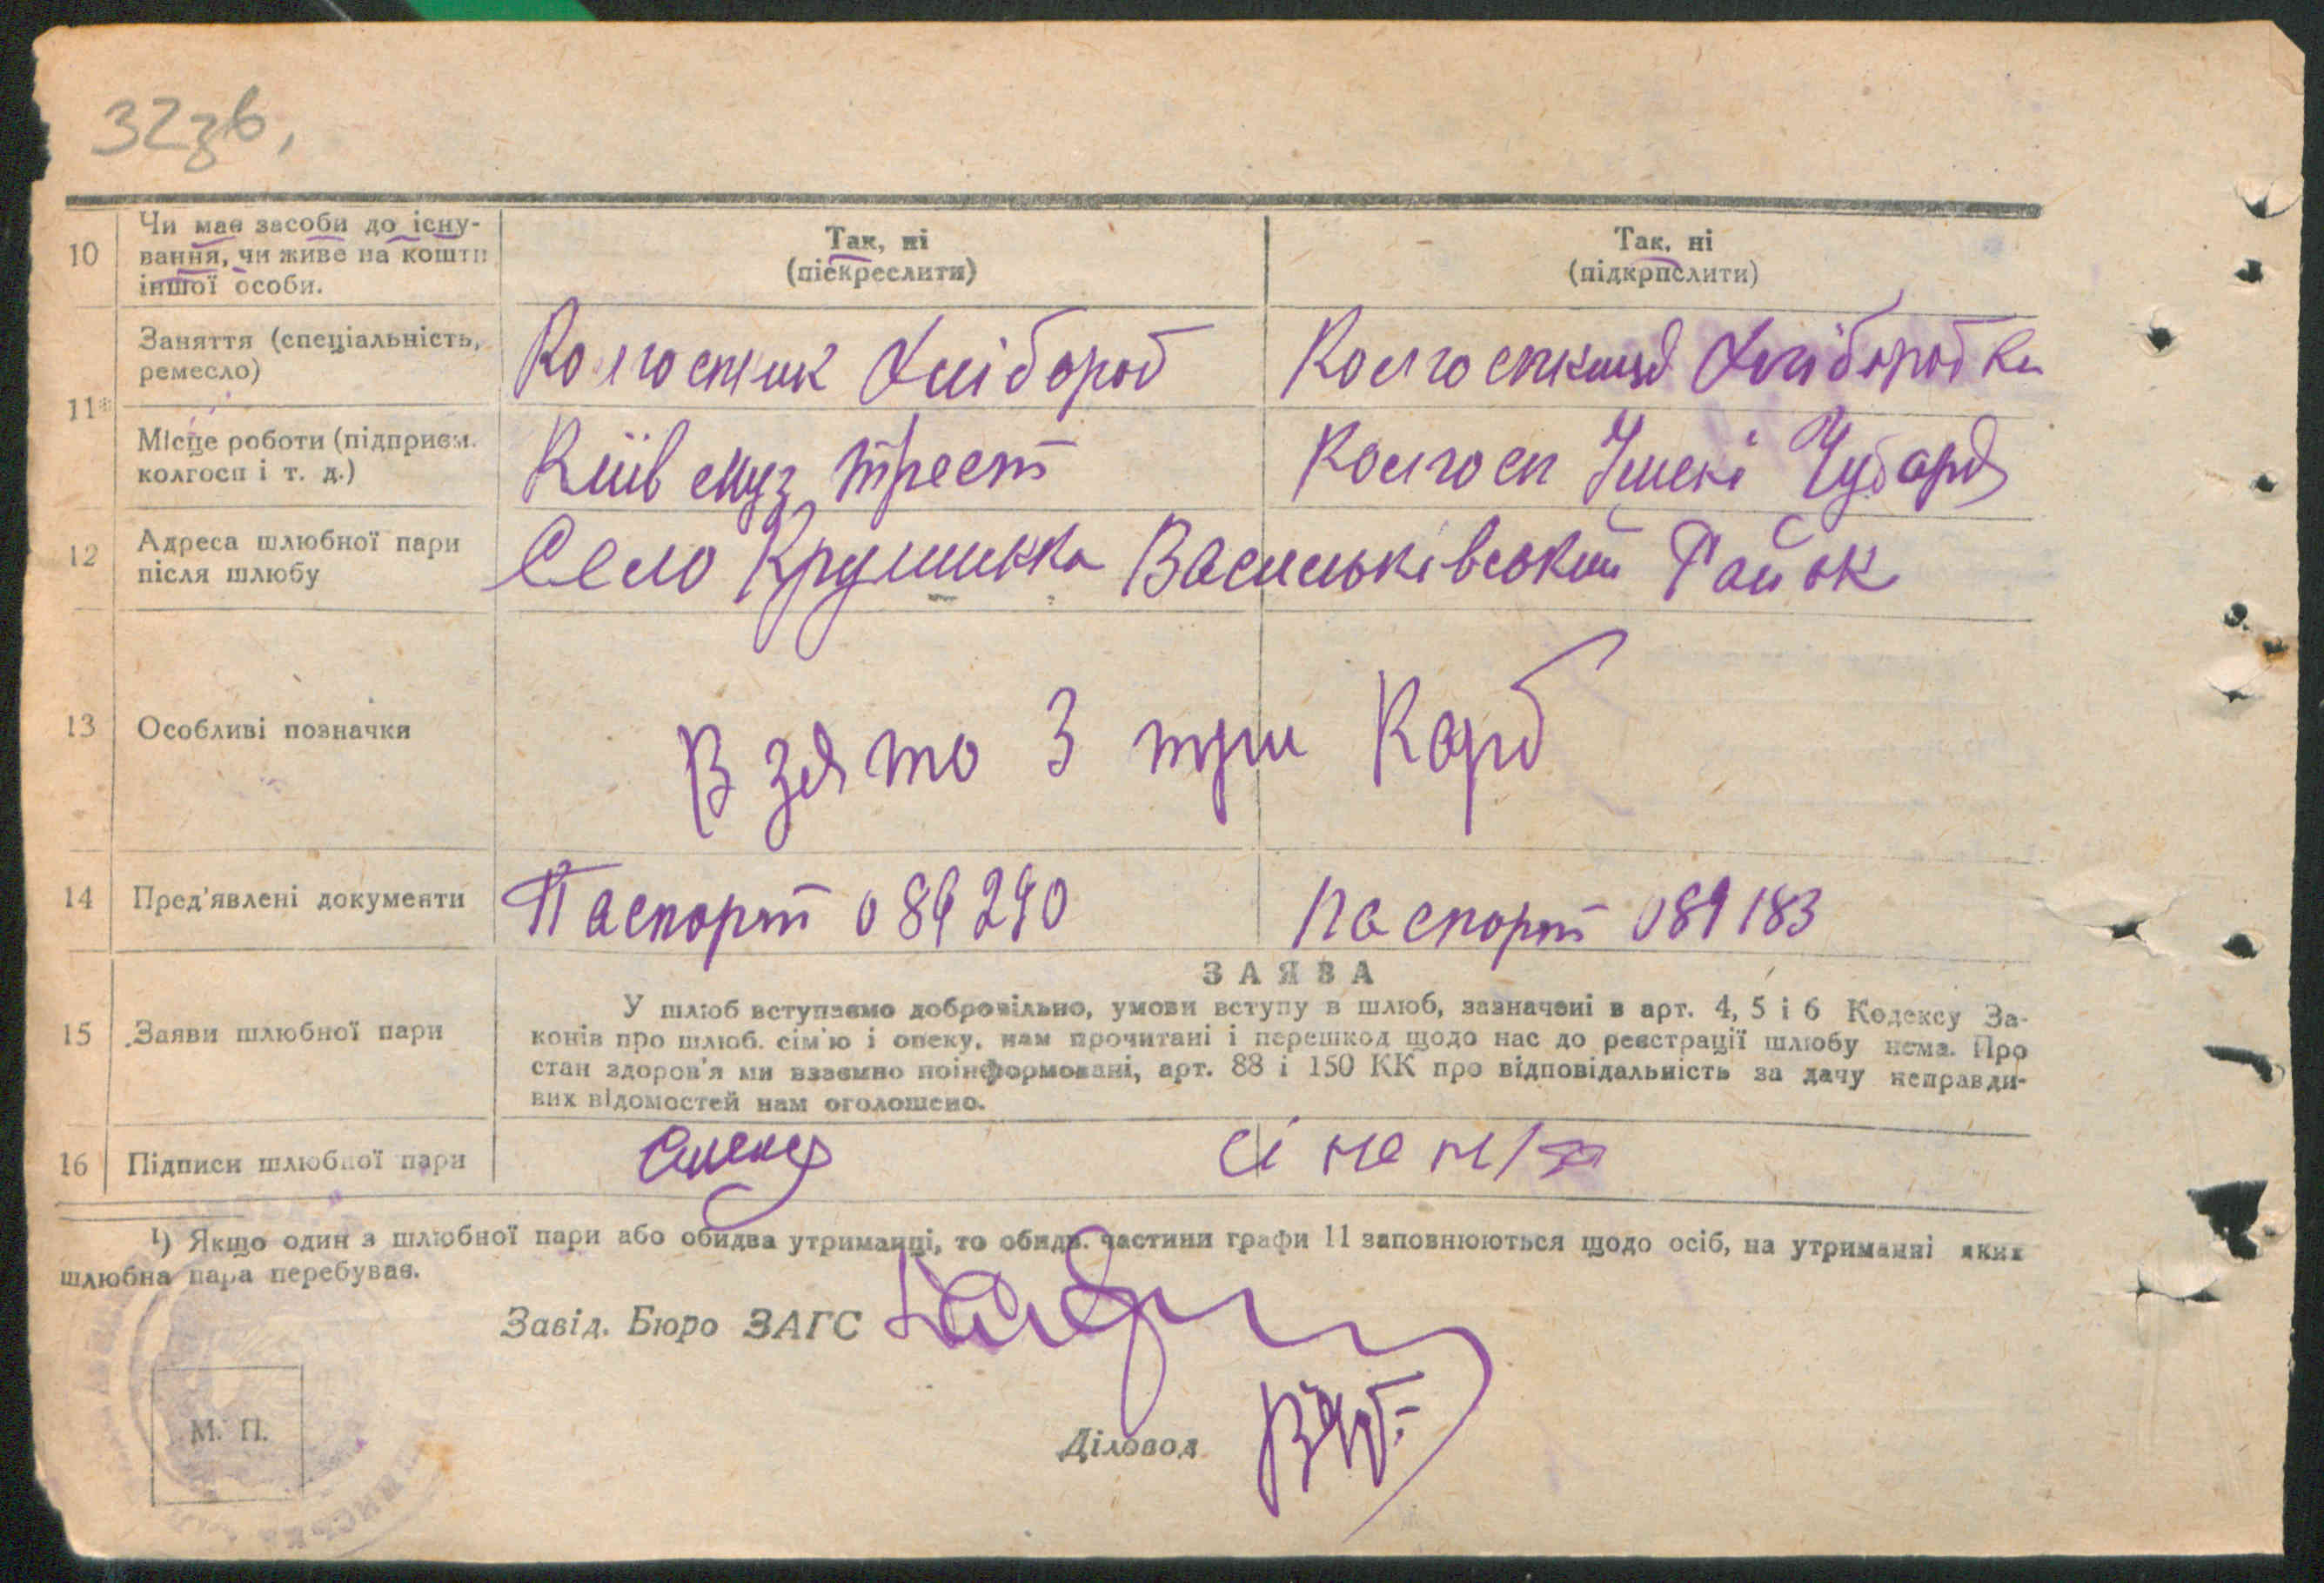 32зв,
10
Чи має засоби до існу-
вання, чи живе на кошти
іншої особи.
Так, ні
(піскреслити)
Так, ні
(підкрпслити)
11
Заняття (спеціальність,
ремесло)
Колгоспник Хлібороб
Колгоспниця Хліборобка
Місце роботи (підприєм.
колгосп і т. д.)
Київ трест
Колгосп Імені Чубаря
12
Адреса шлюбної пари
після шлюбу
Село Крушинка Васильківський Район
13
Особливі позначки
Взято 3 три Карб
14
Пред'явлені документи
Паспорт 089290
Паспорт 089183
15
Заяви шлюбної пари
ЗАЯВА
У шлюб вступаємо добровільно, умови вступу в шлюб, зазначені в арт. 4, 5 і 6 Кодексу За-
конів про шлюб. сім'ю і опеку, нам прочитані і перешкод щодо нас до реєстрації шлюбу нема. Про
стан здоров'я ми взаємно поінформовані, арт. 88 і 150 КК про відповідальність за дачу неправди-
вих відомостей нам оголошено.
16
Підписи шлюбної пари
¹) Якщо один з шлюбної пари або обидва утриманці, то обидв. частини графи 11 заповнюються щодо осіб, на утриманні яких
шлюбна пара перебуває.
Завід. Бюро ЗАГС
М. П.
Діловод